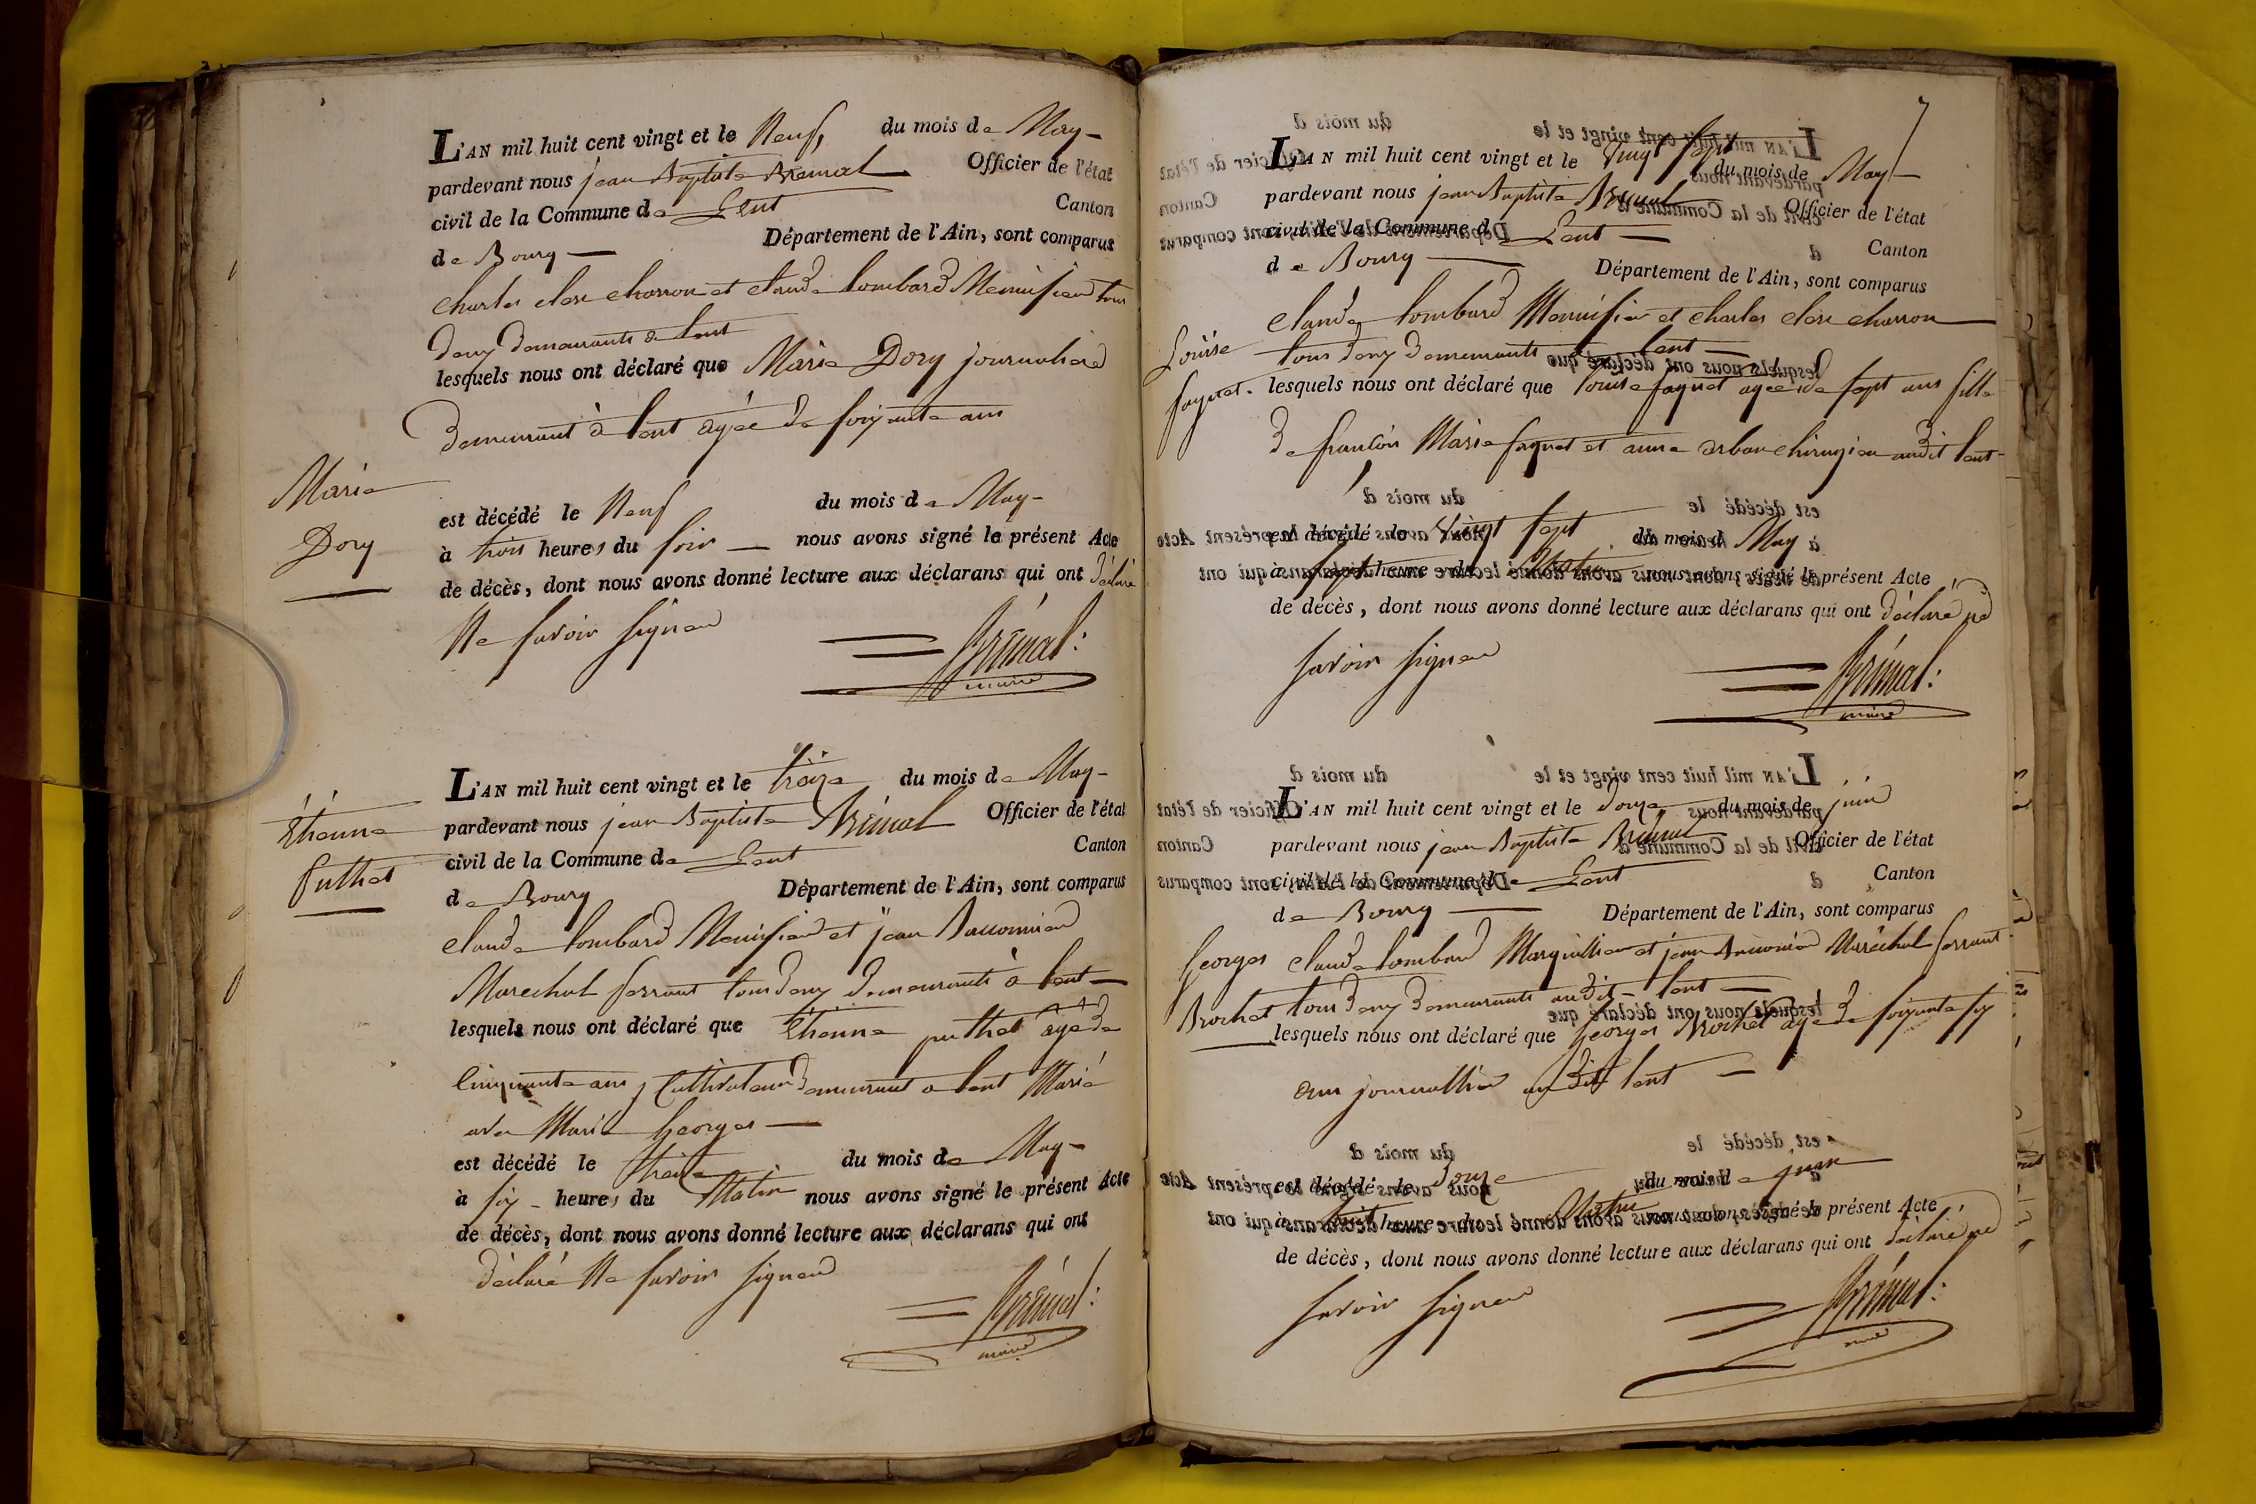 L'AN mil huit cent vingt et le Neuf, du mois de May
pardevant nous jean Baptiste Brémal Officier de l'état
civil de la Commune de Lent Canton
de Bourg Département de l'Ain, sont comparus
Charles clere charron et claude lombard Menuisier tous
deux demeurants a lent
lesquels nous ont déclaré que Marie Dory journaliere
demeurant à lent agée de soixante ans
Marie
Dory
est décédé le Neuf du mois de May
à trois heures du soir nous avons signé le présent Acte
de décès, dont nous avons donné lecture aux déclarans qui ont déclaré
Ne savoir signer
Brémal:
maire
L'AN mil huit cent vingt et le treize du mois de May
Etienne
puthet
pardevant nous jean Baptiste Brémal Officier de l'état
civil de la Commune de Lent Canton
de Bourg Département de l'Ain, sont comparus
claude lombard Menuisier et jean
Marechal ferrant tous deux demeurants à lent
lesquels nous ont déclaré que Etienne puthet agé de
cinquante ans, Cultivateur demeurant a lent Marié
avec Marie Georges
est décédé le treize du mois de May
à six heures du Matin nous avons signé le présent Acte
de décès, dont nous avons donné lecture aux déclarans qui ont
déclaré Ne savoir signer
Brémal:
maire
7
L'AN mil huit cent vingt et le vingt sept du mois de May
pardevant nous jean Baptiste Brémal Officier de l'état
civil de la Commune de Lent Canton
de Bourg Département de l'Ain, sont comparus
claude lombard Menuisier et charles clere charron
Louise
faguet.
tous deux demeurants a lent
lesquels nous ont déclaré que louise faguet agée de sept ans fille
de françois Marie faguet et anne arban chirugien audit lent
est décédé le vingt sept du mois de May
à sept heures du Matin nous avons signé le présent Acte
de décès, dont nous avons donné lecture aux déclarans qui ont déclaré ne
savoir signer
Brémal:
maire
L'AN mil huit cent vingt et le douze du mois de juin
pardevant nous jean Baptiste Brémal Officier de l'état
civil de la Commune de Lent Canton
de Bourg Département de l'Ain, sont comparus
Georges
Brochet
claude lombard Marguillier et jean Maréchal ferrant
tous deux demeurants audit lent
lesquels nous ont déclaré que Georges Brochet agé de soixante six
ans journallier audit lent
est décédé le douze du mois de juin
à heures du Matin nous avons signé le présent Acte
de décès, dont nous avons donné lecture aux déclarans qui ont déclaré ne
savoir signer
Brémal:
maire